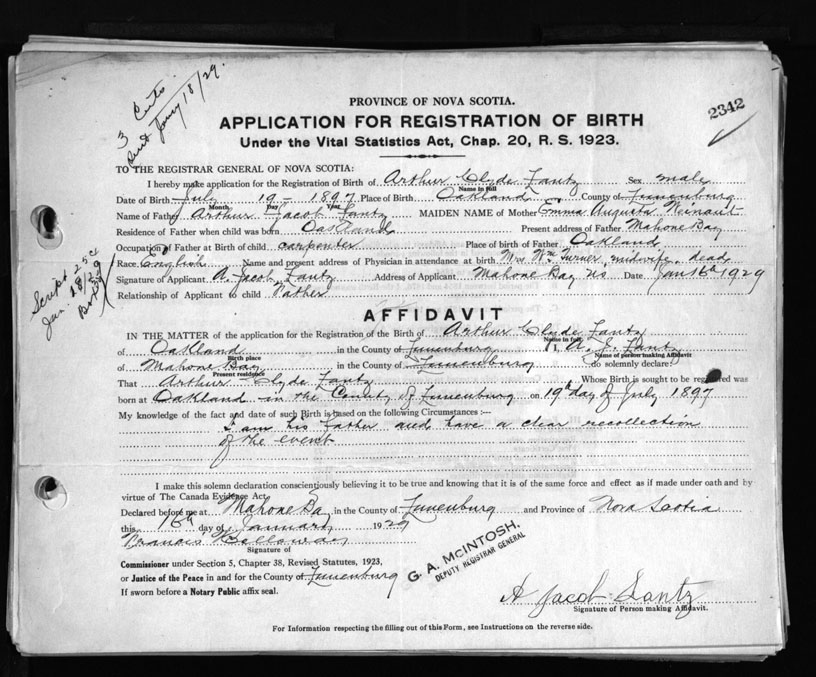 3 Certs.
Sent Jany 18/29.
2342
PROVINCE OF NOVA SCOTIA.
APPLICATION FOR REGISTRATION OF BIRTH
Under the Vital Statistics Act, Chap. 20, R. S. 1923.
TO THE REGISTRAR GENERAL OF NOVA SCOTIA:
I hereby make application for the Registration of Birth of Arthur Clyde Lantz Sex male
Name in full
Date of Birth July 19 - 1897 Place of Birth Oakland County of Lunenburg
Month Day Year
Name of Father Arthur Jacob Lantz MAIDEN NAME of Mother Emma Augusta
Residence of Father when child was born Oakland Present address of Father Mahone Bay
Occupation of Father at Birth of child carpenter Place of birth of Father Oakland
Race English Name and present address of Physician in attendance at birth Mrs Wm Turner, midwife, dead
Signature of Applicant A. Jacob Lantz Address of Applicant Mahone Bay NS Date Jan 16th 1929
Relationship of Applicant to child Father
Script 25c
Jan 18/29
AFFIDAVIT
IN THE MATTER of the application for the Registration of the Birth of Arthur Clyde Lantz
Name in full
of Oakland in the County of Lunenburg I, A. J. Lantz
Birth place Name of person making Affidavit
of Mahone Bay in the County of Lunenburg do solemnly declare:
Present residence
That Arthur Clyde Lantz Whose Birth is sought to be registered was
born at Oakland in the County of Lunenburg on 19th day of July 1897
My knowledge of the fact and date of such Birth is based on the following Circumstances :—
I am his father and have a clear recollection
of the event
I make this solemn declaration conscientiously believing it to be true and knowing that it is of the same force and effect as if made under oath and by
virtue of The Canada Evidence Act.
Declared before me at Mahone Bay in the County of Lunenburg and Province of Nova Scotia
this 16th day of January 1929
Francis
Signature of
Commissioner under Section 5, Chapter 38, Revised Statutes, 1923,
or Justice of the Peace in and for the County of Lunenburg
If sworn before a Notary Public affix seal.
G. A. McINTOSH.
DEPUTY REGISTRAR GENERAL
A Jacob Lantz
Signature of Person making Affidavit.
For Information respecting the filling out of this Form, see Instructions on the reverse side.